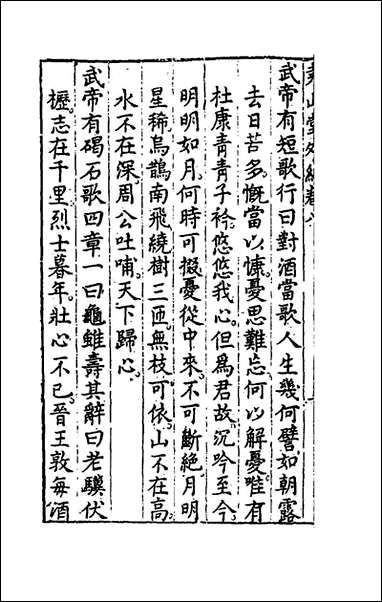 堯山堂外紀卷八
武帝有短歌行曰對酒當歌人生幾何譬如朝露
去日苦多慨當以慷憂思難忘何以解憂唯有
杜康青青子衿悠悠我心但爲君故沉吟至今
明明如月何時可掇憂從中來不可斷絕月明
星稀烏鵲南飛繞樹三匝無枝可依山不在高
水不在深周公吐哺天下歸心
武帝有碣石歌四章一曰龜雖壽其辭曰老驥伏
櫪志在千里烈士暮年壯心不已晉王敦每酒